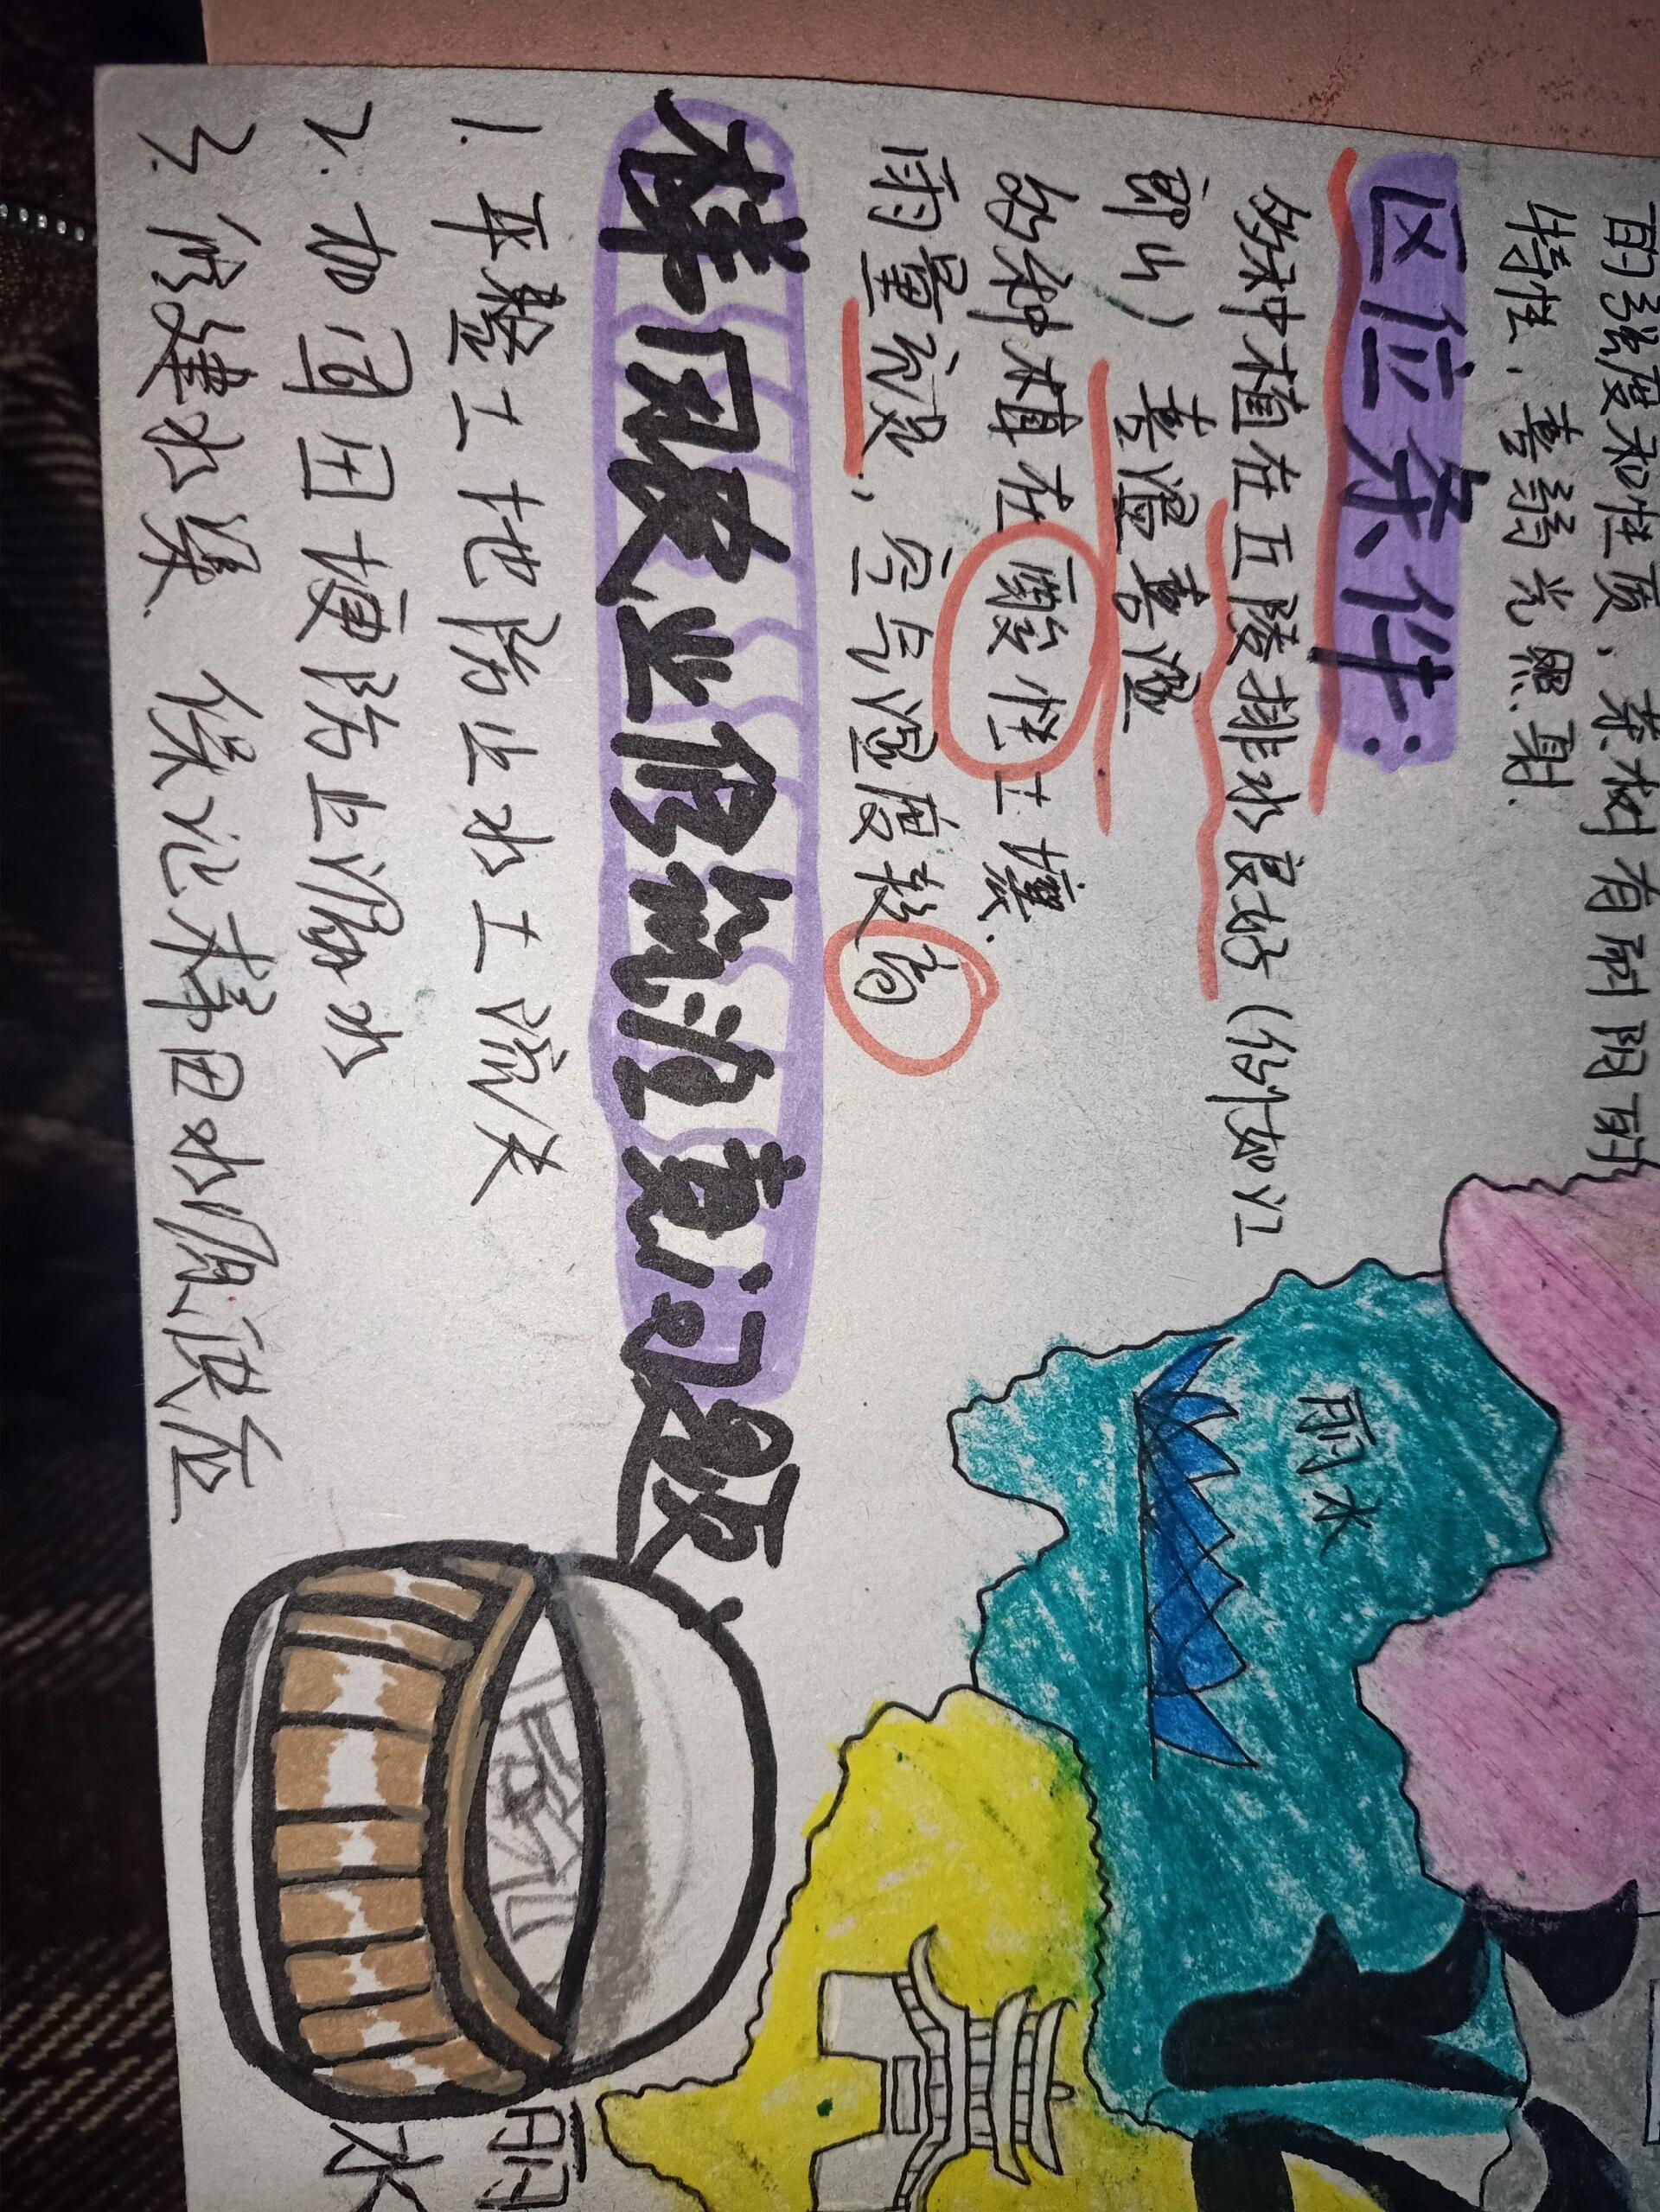 的强度和性质,茶树有耐阴的
特性,喜弱光照射.
区位条件:
多种植在丘陵排水良好(例如江
郎山) 喜温喜湿
多种植在酸性土壤.
雨量充沛,空气湿度较高
梯田农业修筑注意问题
1. 平整土地防止水土流失
2. 加固田埂防止漏水
3. 修建水渠、保证梯田水源供应
丽水
丽水